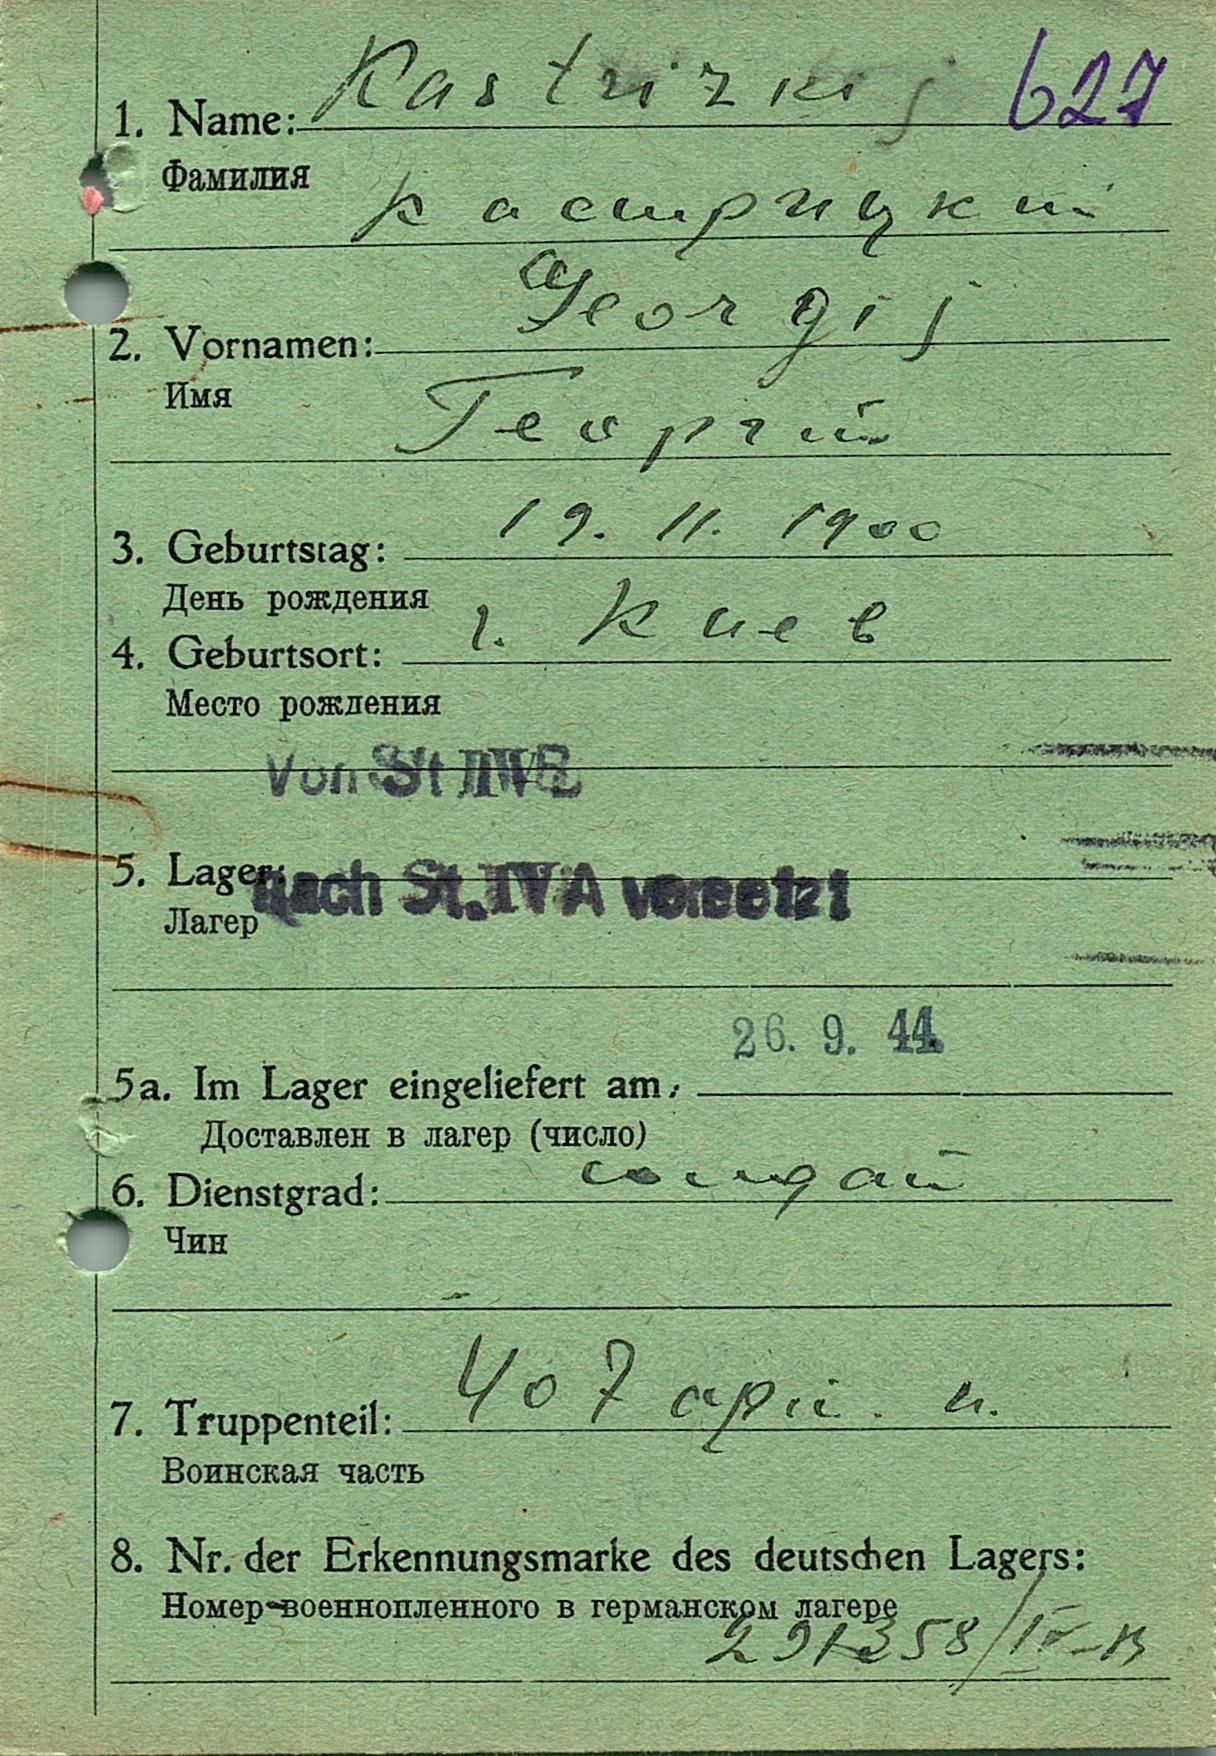 1. Name: Kastrizkij 627
Фамилия
Кастрицкий
Georgij
2. Vornamen:
Имя
Георгий
19. 11. 1900
3. Geburtstag:
День рождения
г. Киев
4. Geburtsort:
Место рождения
Von St IVB
5. Lager: Nach St. IV A versetzt
Лагер
26. 9. 44.
5a. Im Lager eingeliefert am:
Доставлен в лагер (число)
6. Dienstgrad: солдат
Чин
407 арт. п.
7. Truppenteil:
Воинская часть
8. Nr. der Erkennungsmarke des deutschen Lagers:
Номер военнопленного в германском лагере
291358/IV-B